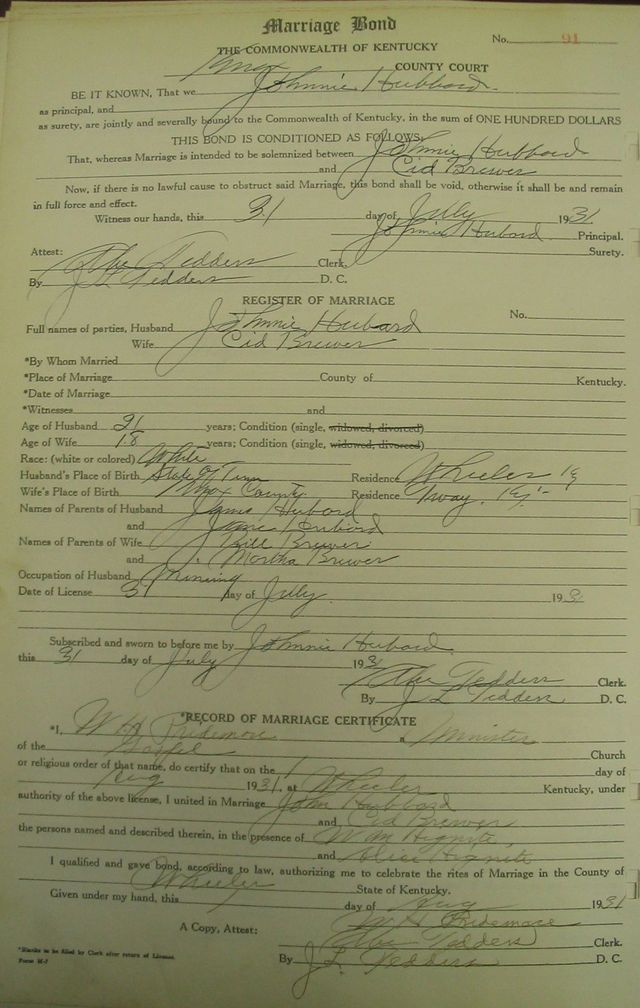 Marriage Bond
No. 91
THE COMMONWEALTH OF KENTUCKY
Knox COUNTY COURT
BE IT KNOWN, That we Johnnie Hubbard
as principal, and
as surety, are jointly and severally bound to the Commonwealth of Kentucky, in the sum of ONE HUNDRED DOLLARS
THIS BOND IS CONDITIONED AS FOLLOWS:
That, whereas Marriage is intended to be solemnized between Johnnie Hubbard
and Cid Brewer
Now, if there is no lawful cause to obstruct said Marriage, this bond shall be void, otherwise it shall be and remain
in full force and effect.
Witness our hands, this 31 day of July 1931.
Johnnie Hubard Principal.
Surety.
Attest:
Abe Tedders Clerk.
By J L Tedders D. C.
REGISTER OF MARRIAGE
No.
Full names of parties, Husband Johnnie Hubard
Wife Cid Brewer
*By Whom Married
*Place of Marriage County of Kentucky.
*Date of Marriage
*Witnesses and
Age of Husband 21 years; Condition (single, widowed, divorced)
Age of Wife 18 years; Condition (single, widowed, divorced)
Race: (white or colored) White
Husband's Place of Birth State of Tenn Residence Wheeler Ky
Wife's Place of Birth Knox County Residence Ky.
Names of Parents of Husband James Hubard
and Jane Hubard
Names of Parents of Wife Bill Brewer
and Martha Brewer
Occupation of Husband Mining
Date of License 31 day of July 193
Subscribed and sworn to before me by Johnnie Hubard
this 31 day of July 193
Abe Tedders Clerk.
By J L Tedders D. C.
*RECORD OF MARRIAGE CERTIFICATE
*I, W H Pridemore a Minister
of the Gospel Church
or religious order of that name, do certify that on the 1 day of
Aug 1931, at Wheeler Kentucky, under
authority of the above license, I united in Marriage John Hubbard
and Cid Brewer
the persons named and described therein, in the presence of Wm Hignite,
and Alice Hignite
I qualified and gave bond, according to law, authorizing me to celebrate the rites of Marriage in the County of
Wheeler State of Kentucky.
Given under my hand, this day of Aug 1931
W H Pridemore
A Copy, Attest: Abe Tedders Clerk.
By J L Tedders D. C.
*Blanks to be filed by Clerk after return of License.
Form M-7